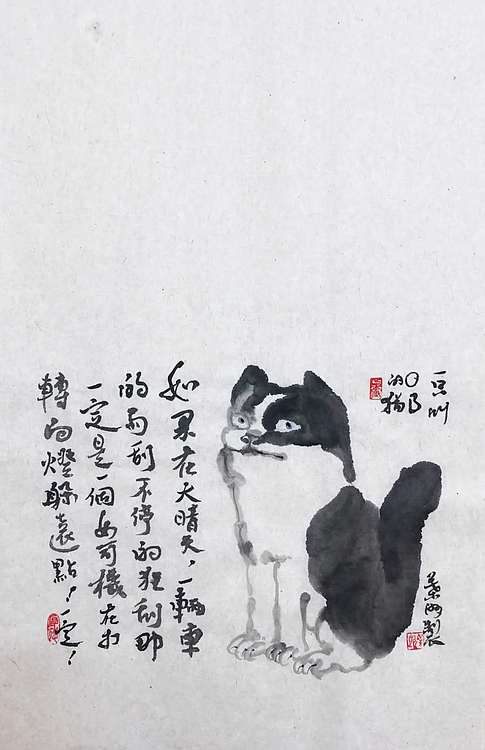 一只叫
的猫
如果在大晴天，一輛車
的雨刮不停的狂刮那
一定是一個女司機在打
轉向燈躲遠點！一定！
製